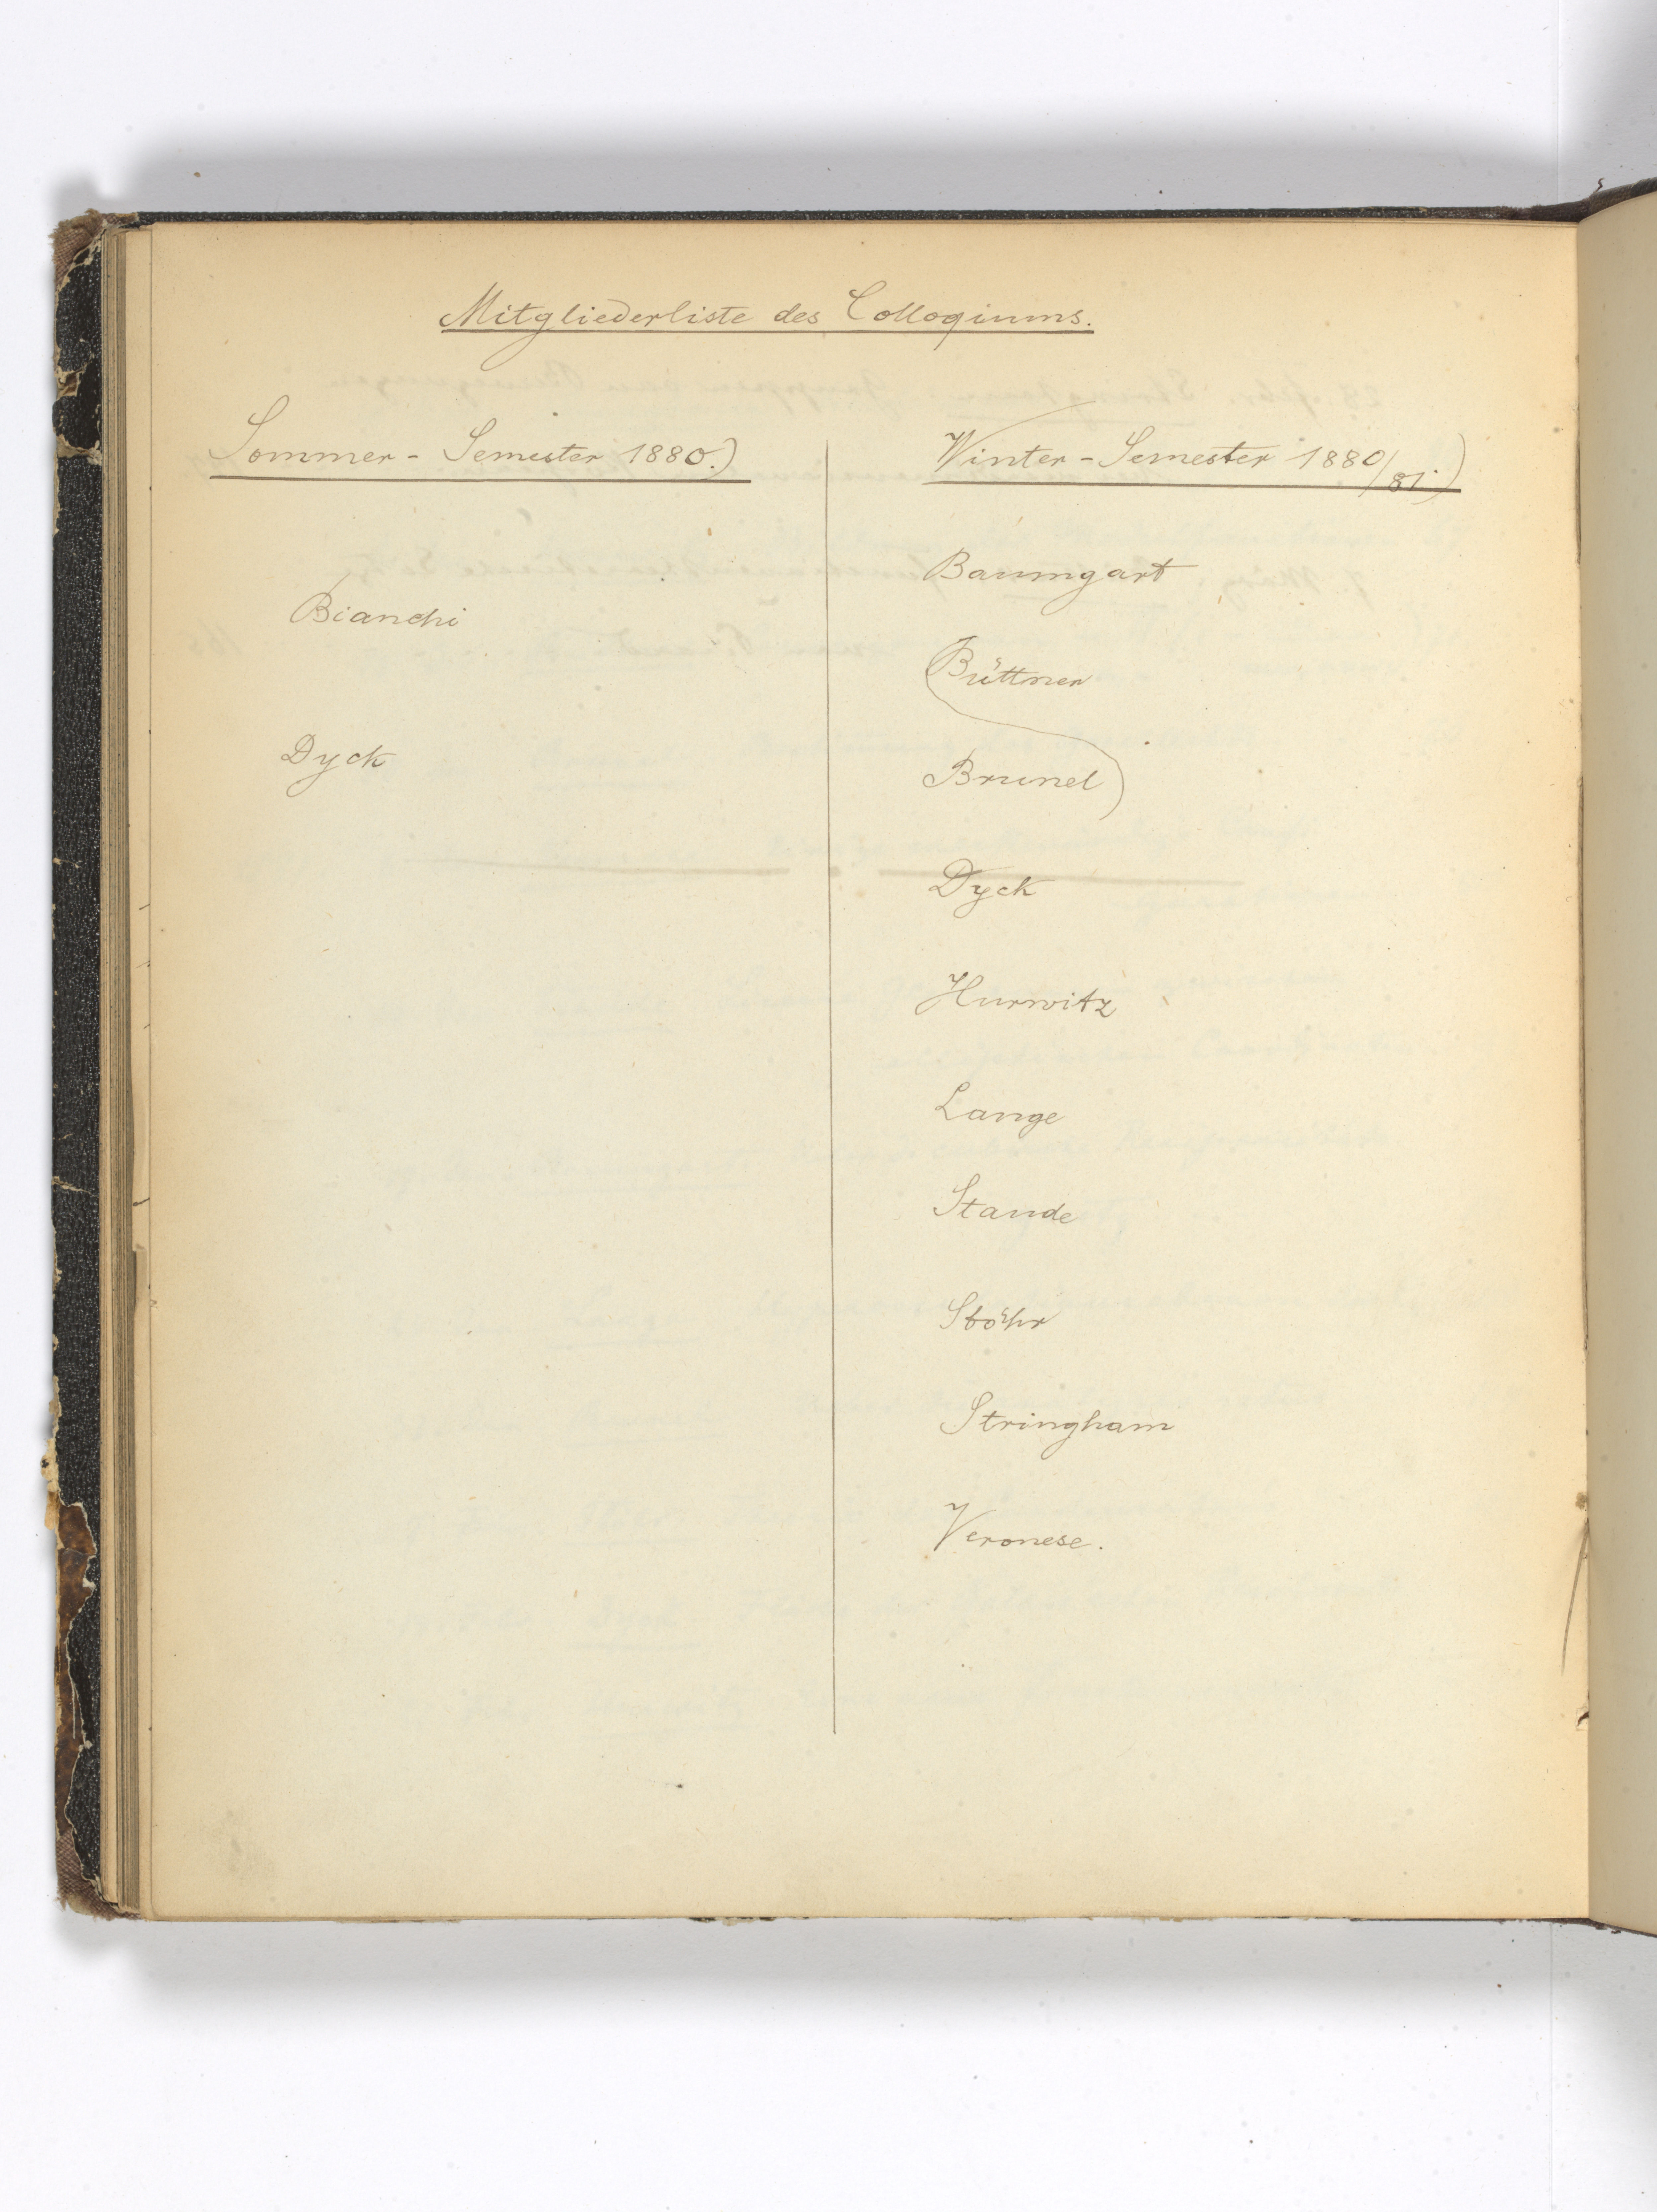 Mitgliederliste des Colloquiums.
Sommer-Semester 1880.)
Bianchi
Dyck
Winter-Semester 1880/81.)
Baumgart
Büttner
Brunel
Dyck
Hurwitz
Lange
Staude
Stöhr
Stringham
Veronese.